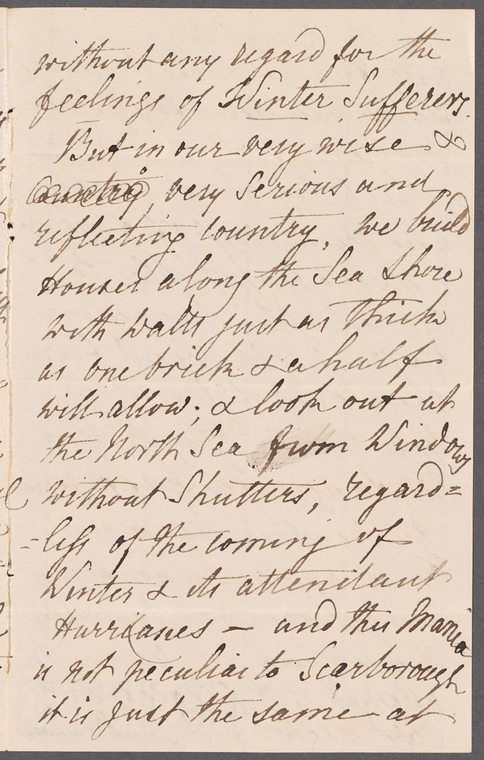 without any regard for the
feelings of Winter Sufferers.
But in our very wise &
very serious and
reflecting Country, we build
Houses along the Sea Shore
with walls just as thick
as one brick & a half
will allow; & look out at
the North Sea from Windows
without Shutters, regard=
=less of the coming of
Winter & its attendant
Hurricanes – and this Mania
is not peculiar to Scarborough
it is just the same at